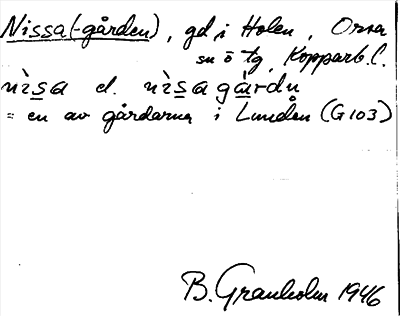 Nissa(-gården), gd i Holen, Orsa
sn o tg, Kopparb. l.
nìsa el. nìsagárdṇ
= en av gårdarna i Lundén (G103)
B. Granholm 1946